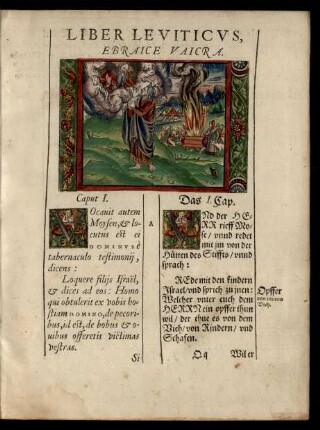 LIBER LEVITICVS,
EBRAICE VAICRA.
Caput I.
VOcauit autem
Moysen, & lo-
cutus est ei
DOMINVS è
tabernaculo testimonij,
dicens:
Loquere filijs Israël,
& dices ad eos: Homo
qui obtulerit ex vobis ho-
stiam DOMINO, de pecori-
bus, id est, de bobus & o-
uibus offeretis victimas
vestras.
Si
A
Das I. Cap.
VNd der HE-
RR rieff Mo-
se / vnnd redet
mit jm von der
Hütten des Stiffts / vnnd
sprach:
REde mit den kindern
Israel / vnd sprich zu jnen:
Welcher vnter euch dem
HERRN ein opffer thun
wil / der thue es von dem
Vieh / von Rindern / vnd
Schafen.
Qq Wil er
Opffer
von
Vieh.